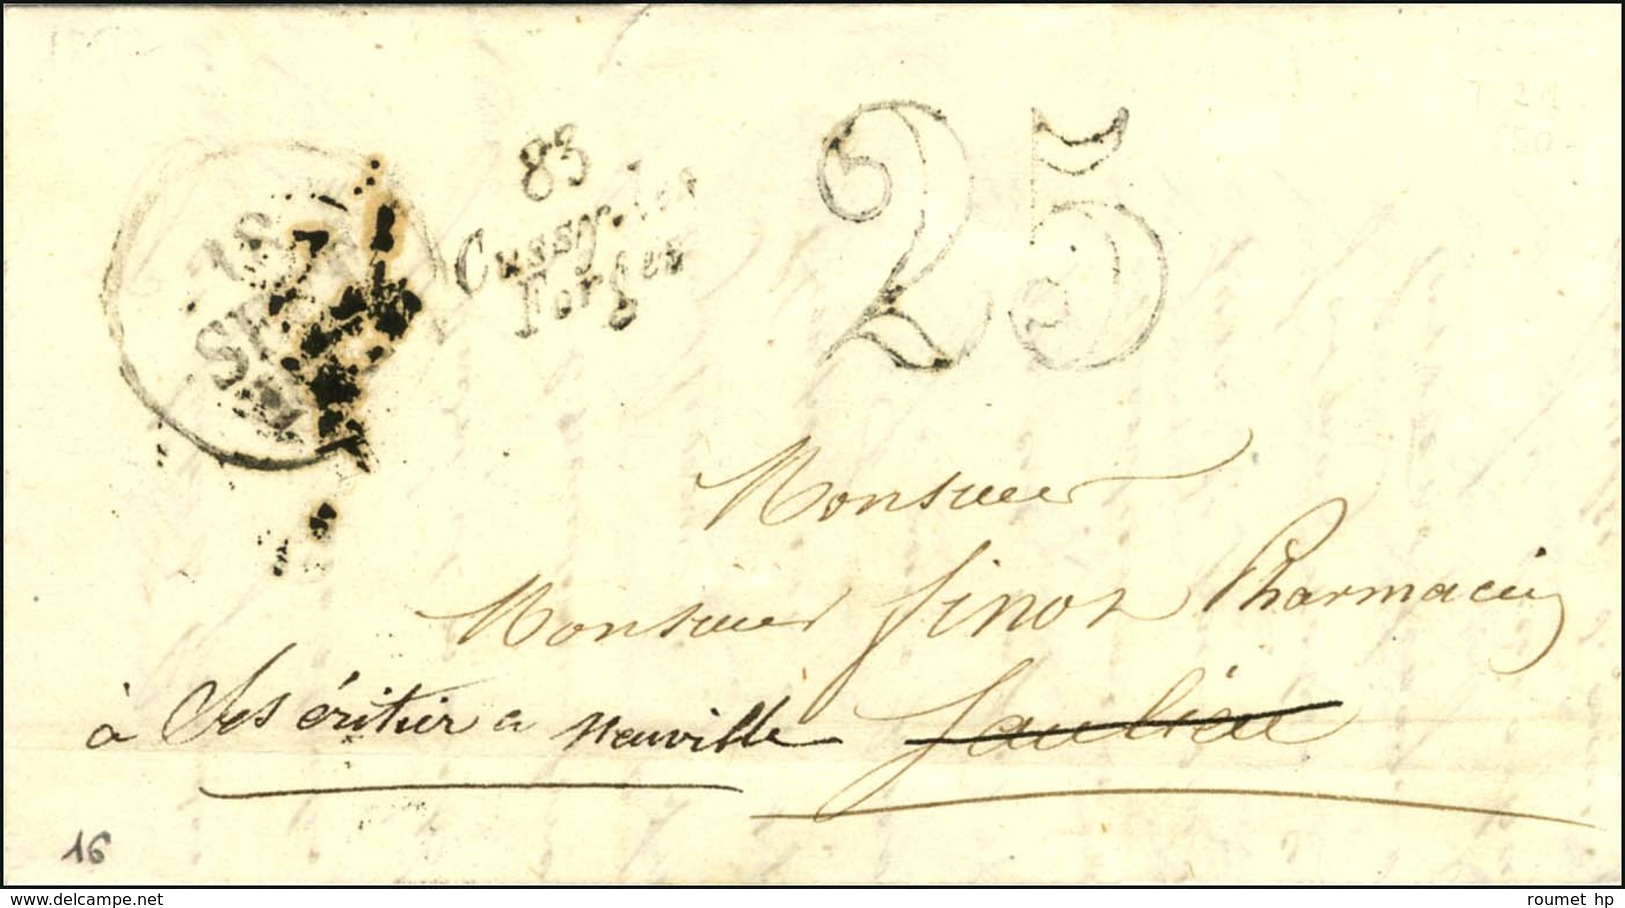 83
Cussy-les
Forges
25
18
SEPT
Monsieur
Monsieur finot Pharmacien
à Ses éritier a Neuville Saulieu
16
delcampe.net
roumet hp